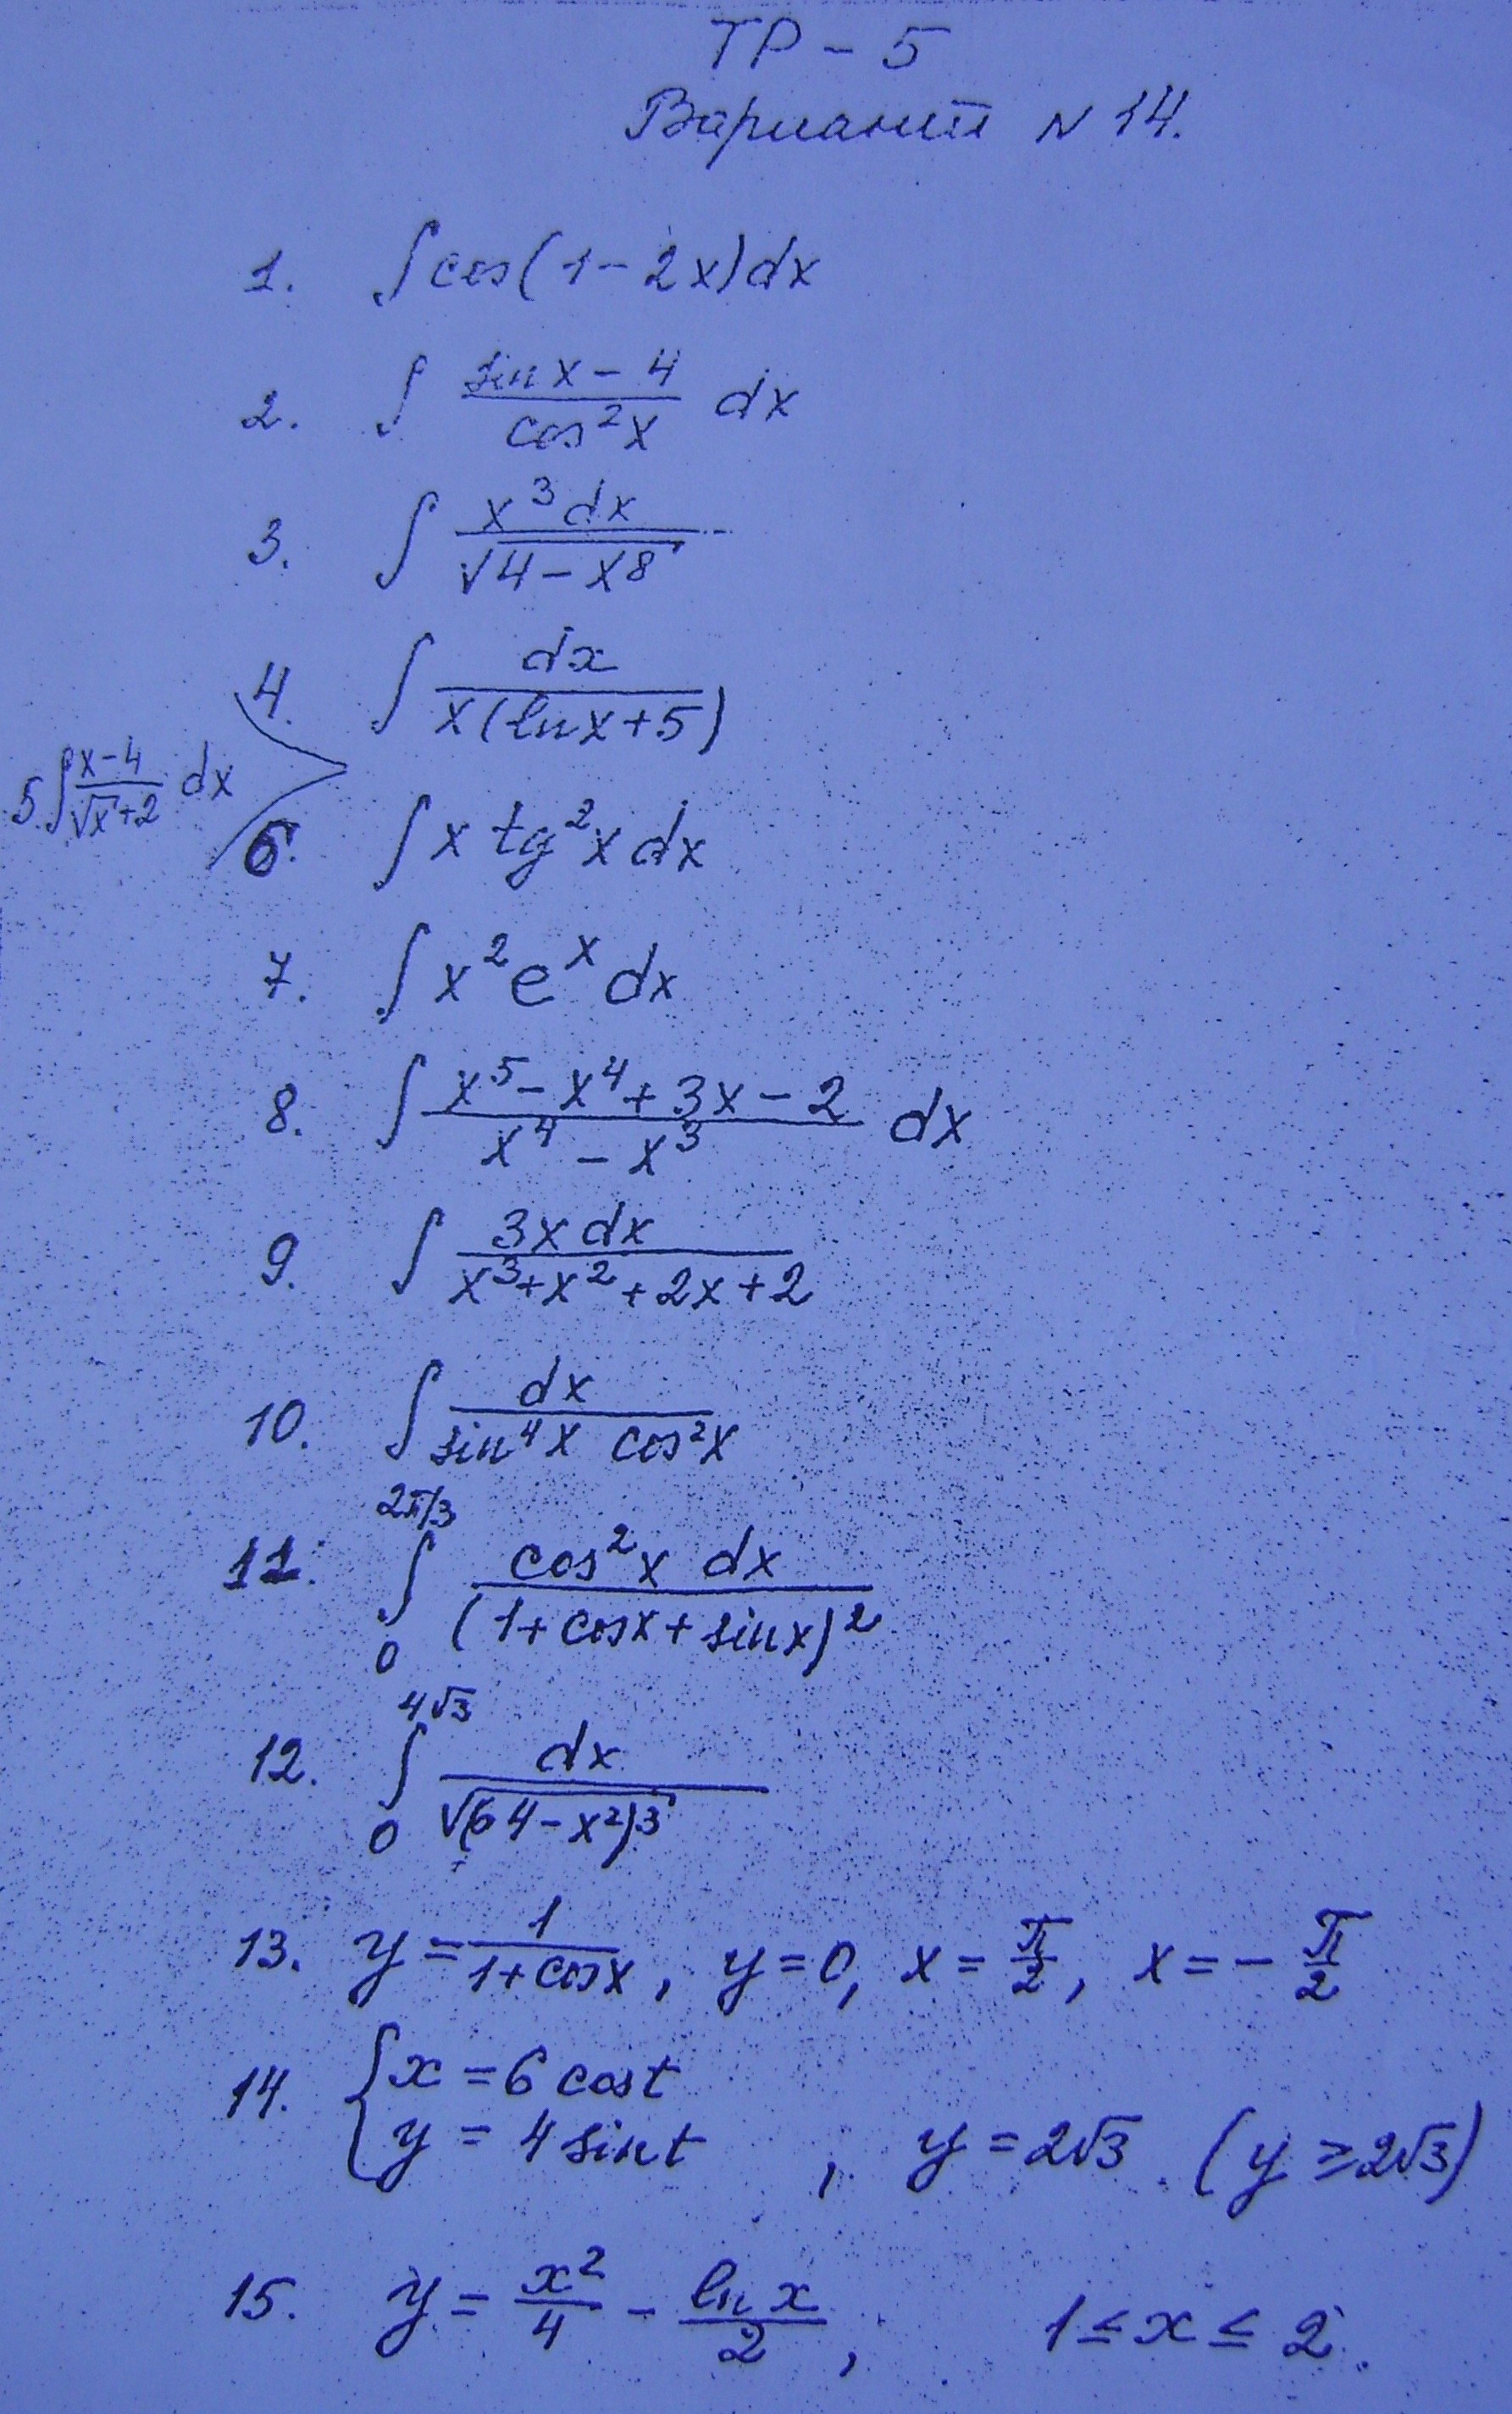 ТР – 5
Вариант N 14.
1. ∫ cos(1 – 2x)dx
2. ∫ (sin x – 4)/(cos²x) dx
3. ∫ (x³dx)/(√(4 – x8))
4. ∫ dx/(x(ln x + 5))
5. ∫ (x – 4)/(√x + 2) dx
6. ∫ x tg²x dx
7. ∫ x²eˣ dx
8. ∫ (x⁵ – x⁴ + 3x – 2)/(x⁴ – x³) dx
9. ∫ (3x dx)/(x³ + x² + 2x + 2)
10. ∫ dx/(sin⁴x cos²x)
11. ∫₀^(2π/3) (cos²x dx)/(1 + cosx + sinx)²
12. ∫₀^(4√3) dx/√((64 – x²)3)
13. y = 1/(1 + cosx), y = 0, x = π/2, x = – π/2
14. { x = 6 cost
y = 4 sint , y = 2√3 . (y ≥ 2√3)
15. y = x²/4 – ln x/2, 1 ≤ x ≤ 2.